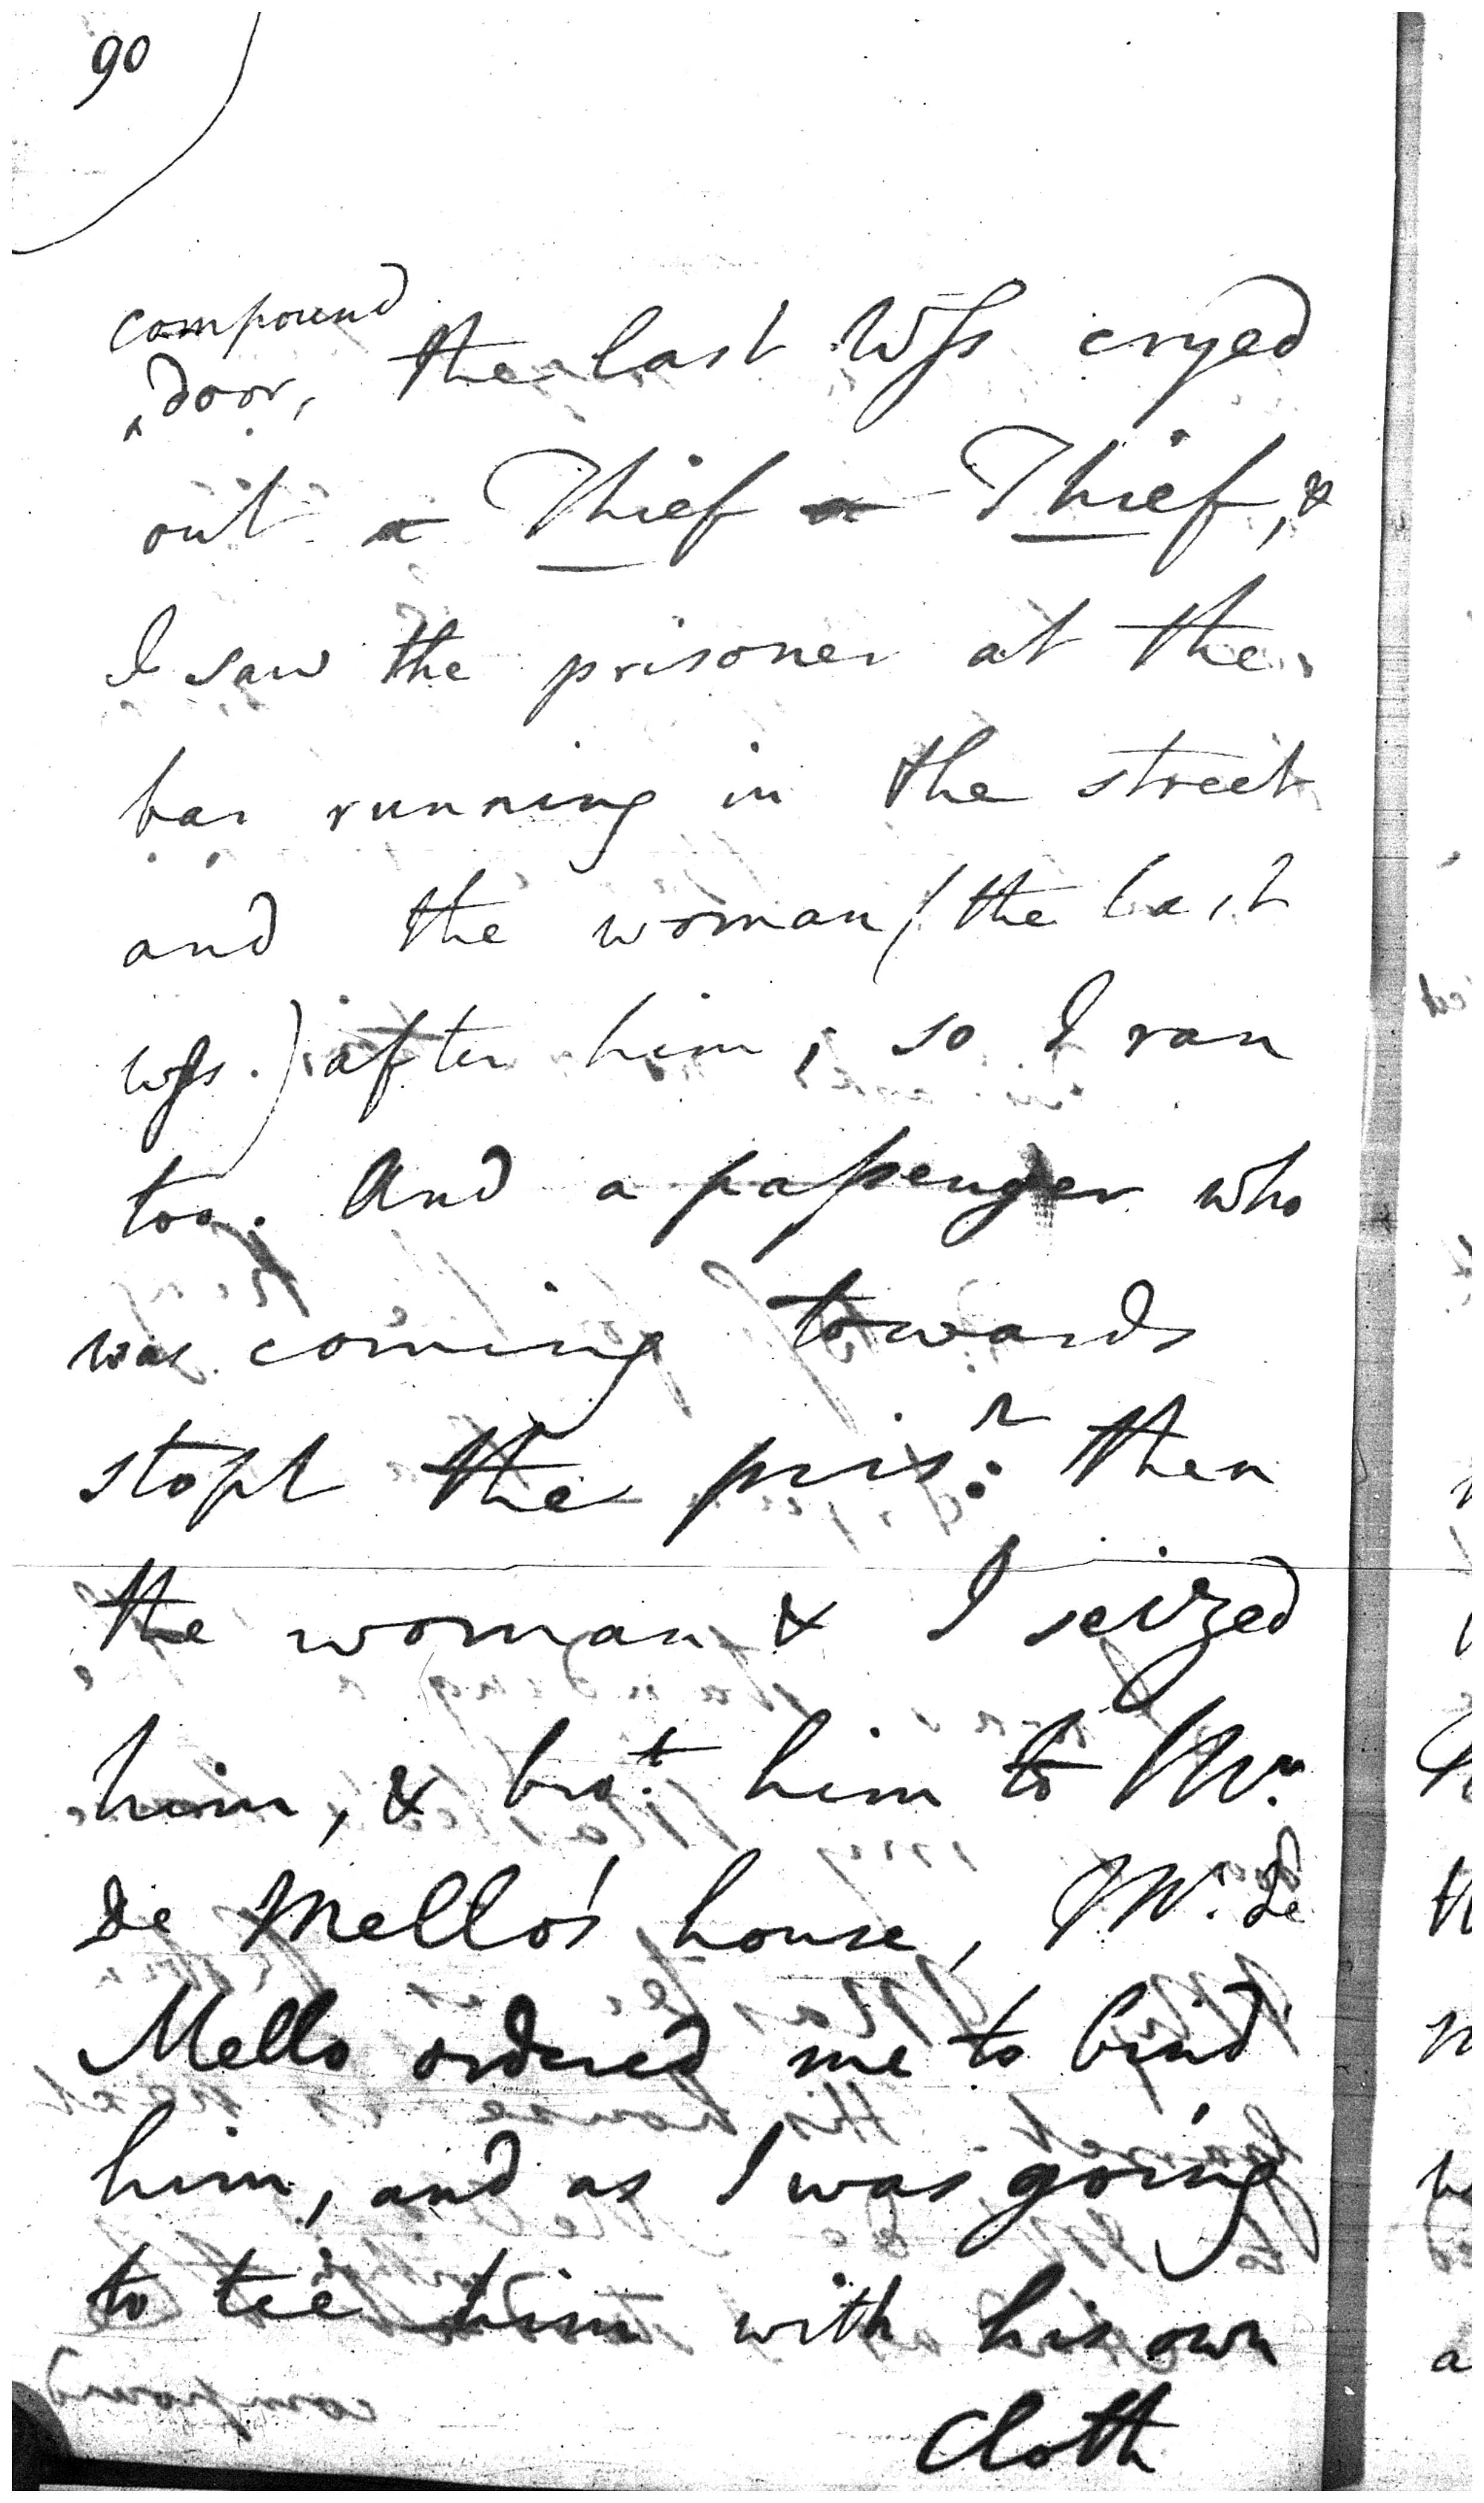 90
compound
^door, the last Wss cryed
out a Thief a Thief, &
I saw the prisoner at the
bar running in the street
and the woman (the last
wss.) after him, so I ran
too. And a passenger who
was coming towards
stopt the prisr. then
the woman & I seized
him, & brot. him to Mr.
De Mello's house, Mr. de
Mello ordered me to bind
him, and as I was going
to tie him with his own
Cloth